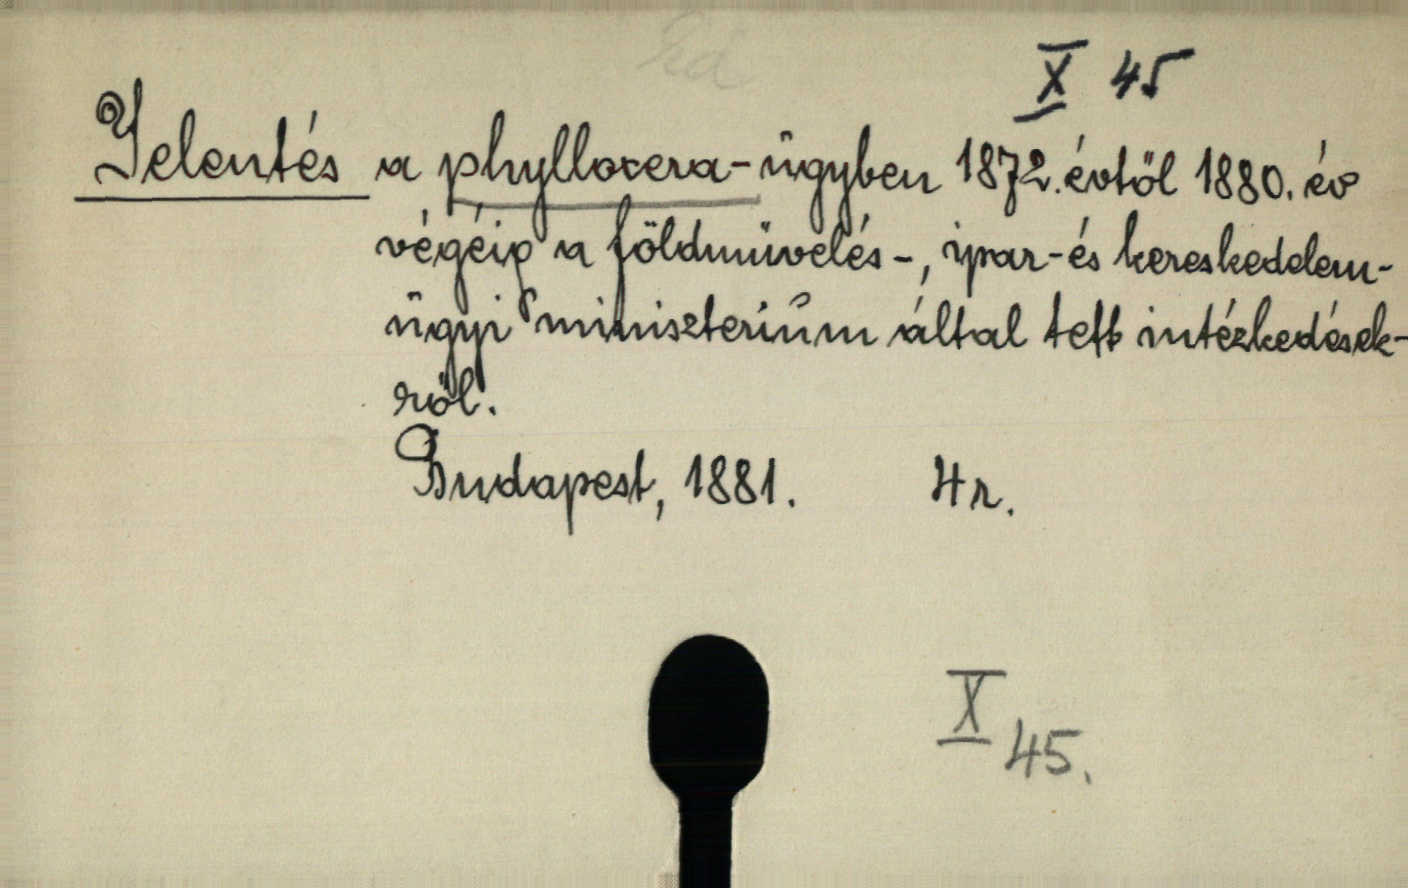 X 45
Jelentés a phylloxera-ügyben 1872. évtöl 1880. év
végéig a földmüvelés-, ipar- és kereskedelem-
ügyi miniszterium által tett intézkedések-
röl.
Budapest, 1881. 4r.
X
45.